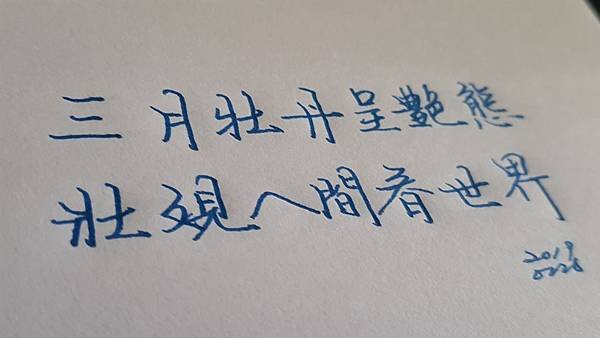 三月牡丹呈艷態
壯覌人間看世界
2019
0226